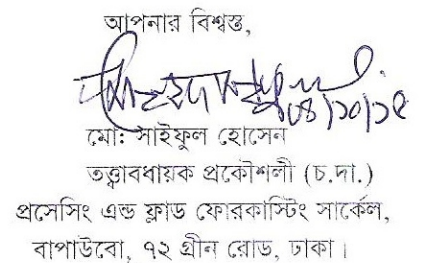 আপনার বিশ্বস্ত,
০৪/১০/১৫
মো: সাইফুল হোসেন
তত্ত্বাবধায়ক প্রকৌশলী (চ.দা.)
প্রসেসিং এন্ড ফ্লাড ফোরকাস্টিং সার্কেল,
বাপাউবো, ৭২ গ্রীন রোড, ঢাকা।